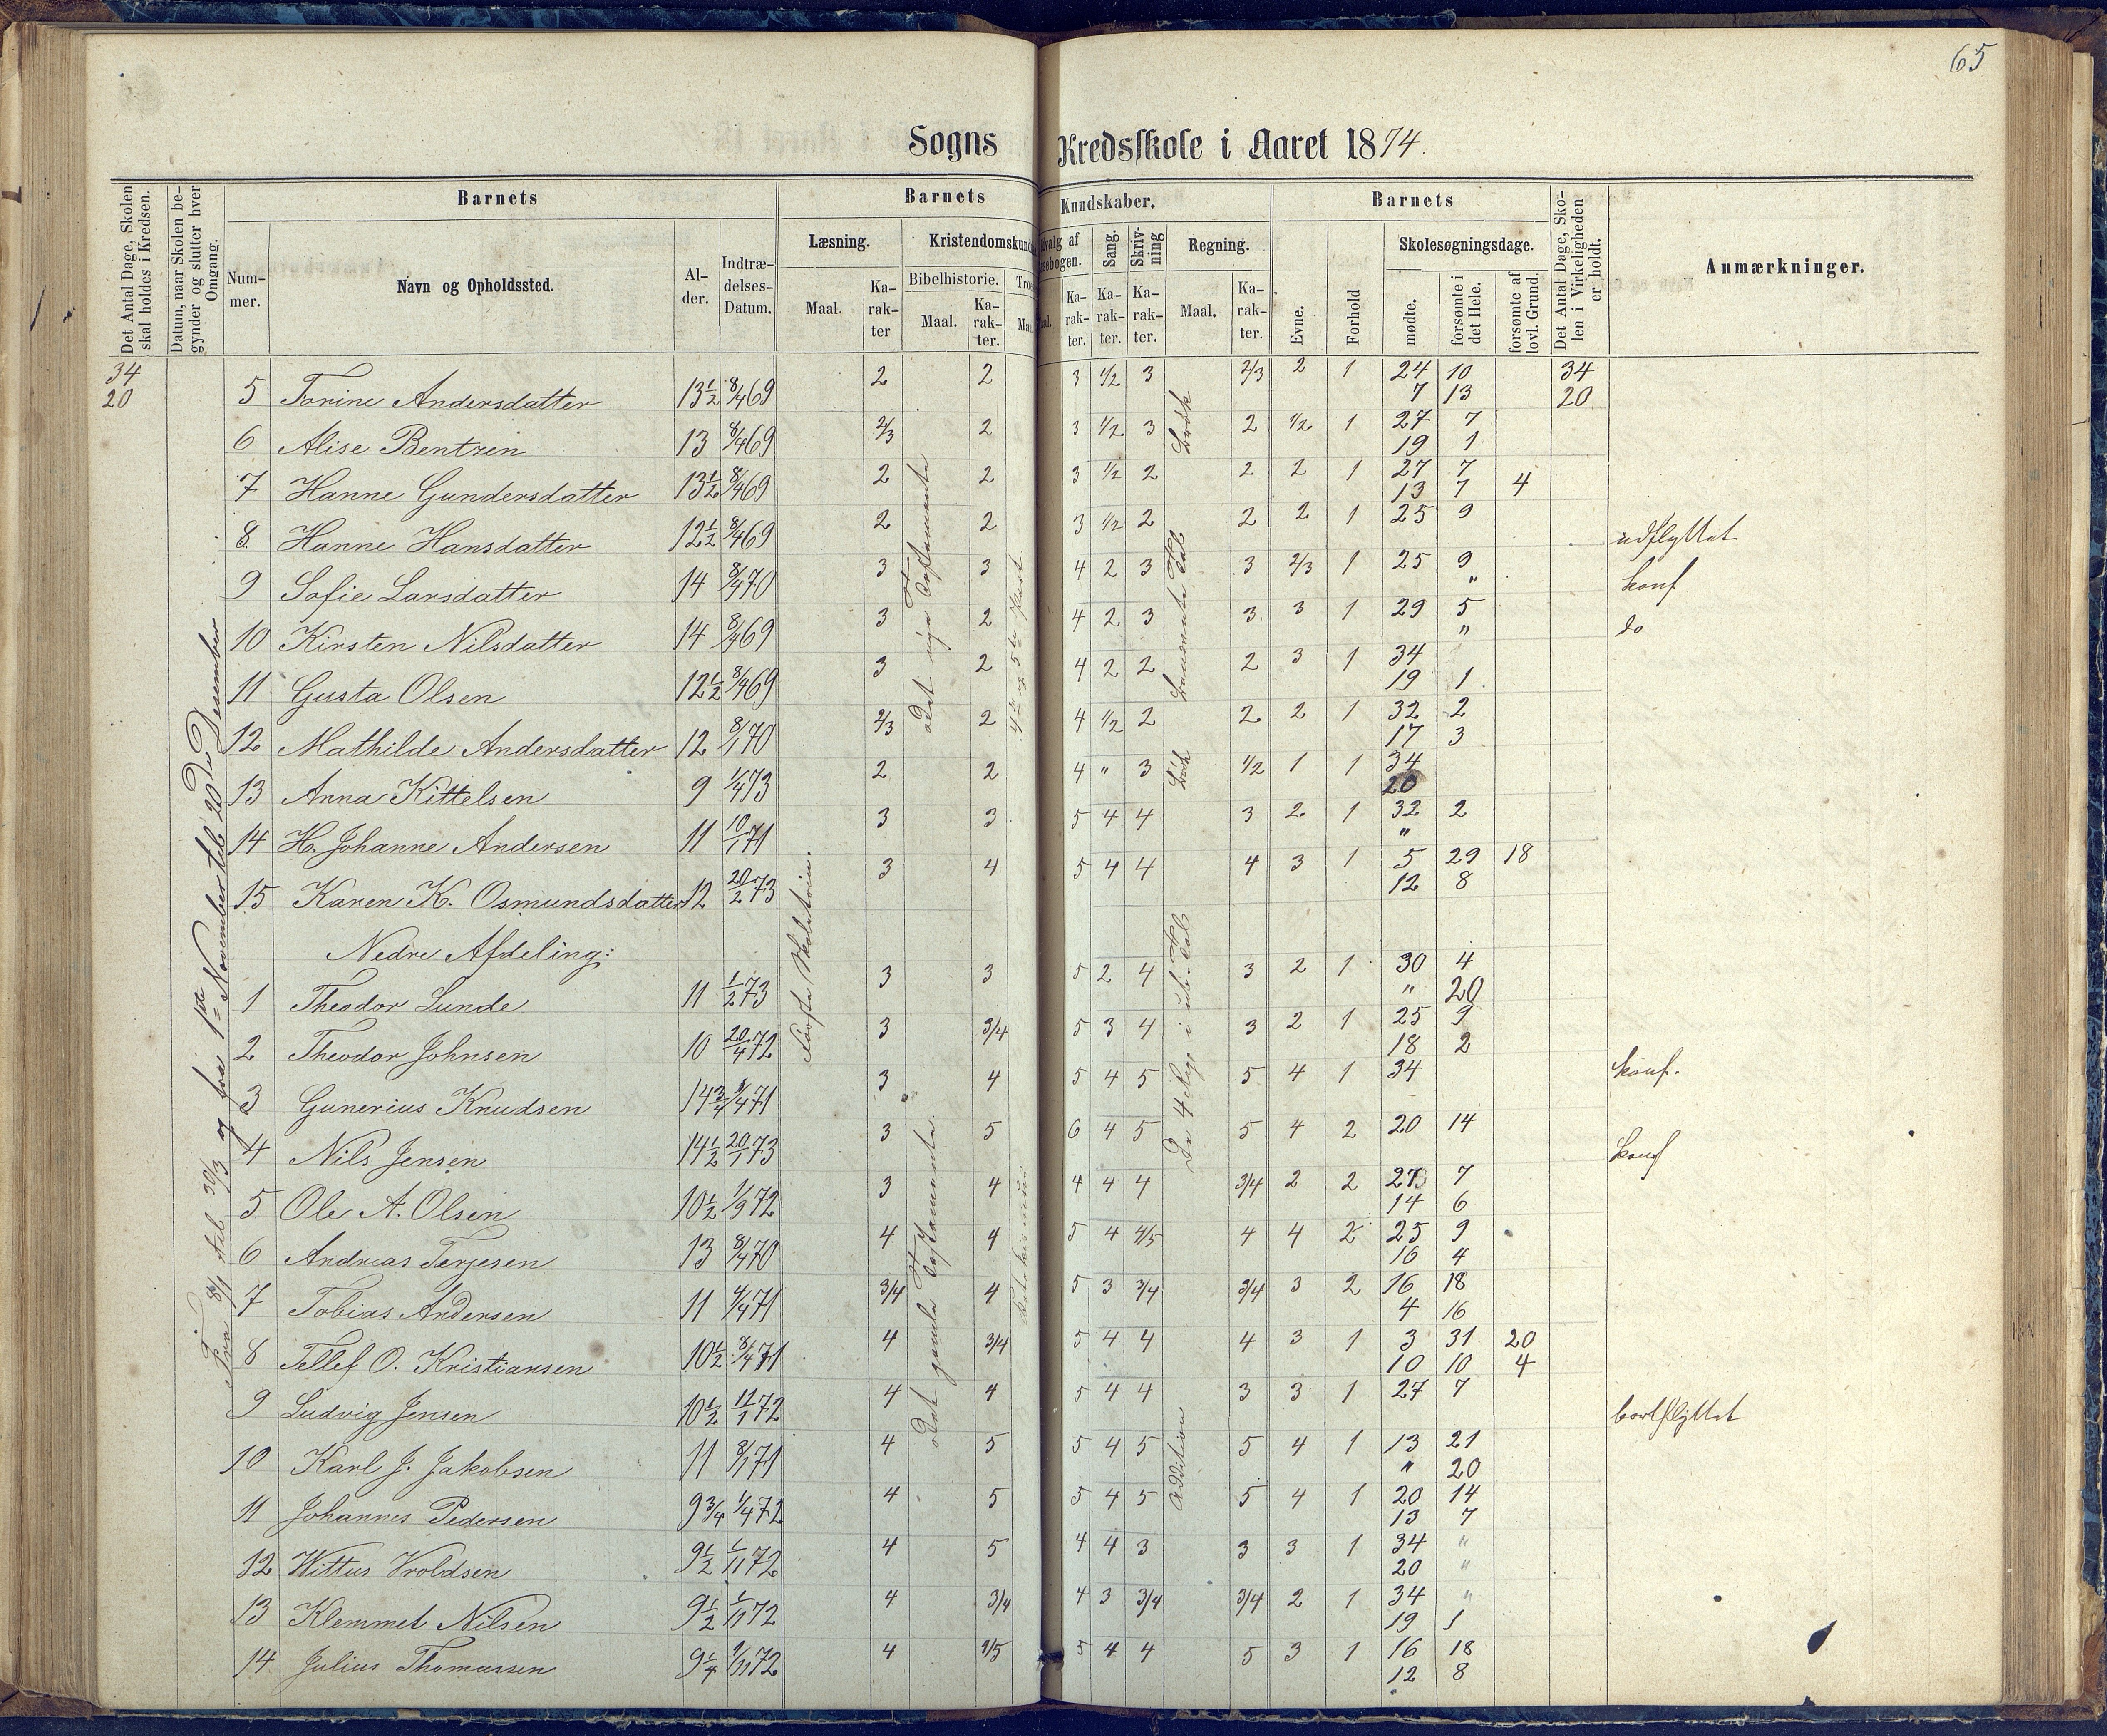 65
Sogns Kredsskole i Aaret 1874.
Det Antal Dage, Skolen skal holdes i Kredsen.
Datum, naar Skolen begynder og slutter hver Omgang.
Barnets
Nummer.
Navn og Opholdssted.
Alder.
Indtrædelses-Datum.
Barnets Kundskaber.
Læsning.
Maal.
Karakter
Kristendomskund
Bibelhistorie.
Maal.
Karakter.
Troes
Maal
valg af
sebogen.
Karakter.
Sang.
Karakter.
Skrivning
Karakter.
Regning.
Maal.
Karakter.
Barnets
Evne.
Forhold
Skolesøgningsdage.
mødte.
forsømte i det Hele.
forsømte af lovl. Grund.
Det Antal Dage, Skolen i Virkeligheden er holdt.
Anmærkninger.
34 2 2 3 1/2 3 2/3 2 1 24 10 34
20 5 Torine Andersdatter 13 1/2 8/4 69 7 13 20
2/3 2 3 1/2 3 2 1/2 1 27 7
6 Alise Bentzen 13 8/4 69 19 1
2 2 3 1/2 2 2 2 1 27 7
7 Hanne Gundersdatter 13 1/2 8/4 69 13 7 4
2 2 3 1/2 2 2 2 1 25 9
8 Hanne Hansdatter 12 1/2 8/4 69 udflyttet
3 3 4 2 3 3 2/3 1 25 9
9 Sofie Larsdatter 14 8/4 70 " konf
3 2 4 2 3 3 3 1 29 5
10 Kirsten Nilsdatter 14 8/4 69 " do
3 2 4 2 2 2 3 1 34
11 Gusta Olsen 12 1/2 8/4 69 19 1
2/3 2 4 1/2 2 2 2 1 32 2
12 Mathilde Andersdatter 12 8/1 70 17 3
2 2 4 " 3 1/2 1 1 34
13 Anna Kittelsen 9 1/4 73 20
3 3 5 4 4 3 2 1 32 2
14 H. Johanne Andersen 11 10/1 71 "
3 4 5 4 4 4 3 1 5 29 18
15 Karen K. Osmundsdatter 12 20/2 73 12 8
Nedre Afdeling:
3 3 5 2 4 3 2 1 30 4
1 Theodor Lunde 11 1/2 73 " 20
3 3/4 5 3 4 3 2 1 25 9
2 Theodor Johnsen 10 20/4 72 18 2
3 4 5 4 5 5 4 1 34 konf.
3 Gunerius Knudsen 14 3/4 8/4 71
3 5 6 4 5 5 4 2 20 14
4 Nils Jensen 14 1/2 20/1 73 konf
3 4 4 4 4 3/4 2 2 27 7
5 Ole A. Olsen 10 1/2 1/9 72 14 6
4 4 5 4 4/5 4 4 2 25 9
6 Andreas Terjesen 13 8/4 70 16 4
3/4 4 5 3 3/4 3/4 3 2 16 18
7 Tobias Andersen 11 4/4 71 4 16
4 3/4 5 4 4 4 3 1 3 31 20
8 Tellef O. Kristiansen 10 1/2 8/4 71 10 10 4
4 4 5 4 4 3 3 1 27 7
9 Ludvig Jensen 10 1/2 11/1 72 bortflyttet
4 5 5 4 5 5 4 1 13 21
10 Karl J. Jakobsen 11 8/1 71 " 20
4 5 5 4 5 5 4 1 20 14
11 Johannes Pedersen 9 3/4 1/4 72 13 7
4 5 4 4 3 3 3 1 34 "
12 Wittus Vroldsen 9 1/2 1/11 72 20 "
4 3/4 4 3 3/4 3/4 2 1 34 "
13 Klemmet Nilsen 9 1/2 1/11 72 19 1
4 4/5 5 4 4 5 3 1 16 18
14 Julius Thomassen 9 1/4 1/11 72 12 8
Fra 8/1 til 20/3 og fra 1ste November til 20de Desember
det nye Testamente
4de og 5te Part
Brøk
Benævnte Tal
Brøk
De 4 Reg. i ub. Tal
det gamle Testamente
Katekismus
Addition